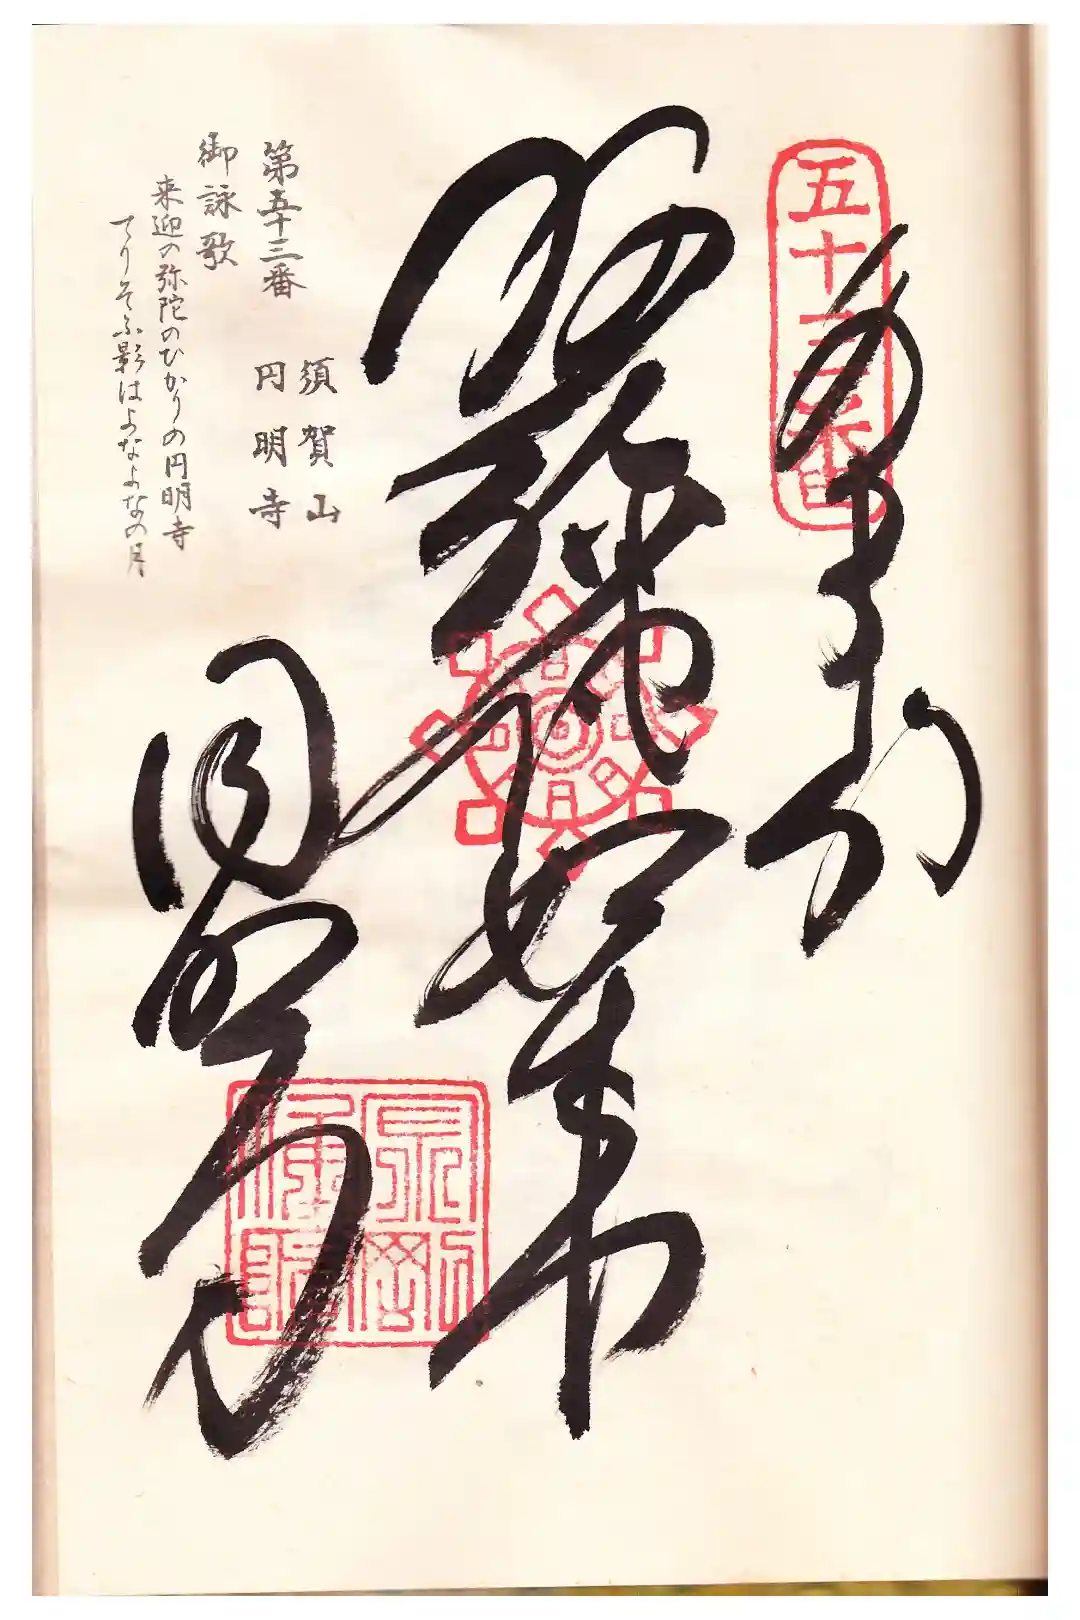 五十三番
奉納
阿弥陀如来
圓明寺
須賀山
第五十三番 円明寺
御詠歌
来迎の弥陀のひかりの円明寺
てりそふ影はよなよなの月